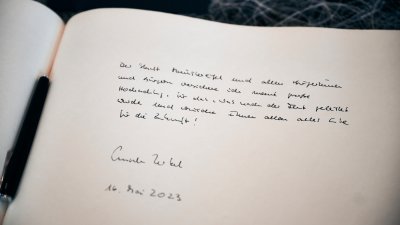 Der Stadt Münstereifel und allen Bürgerinnen
und Bürgern versichere ich meine große
Hochachtung, für das, was nach der Flut geleistet
wurde und wünsche Ihnen allen alles Gute
für die Zukunft!
16. Mai 2023